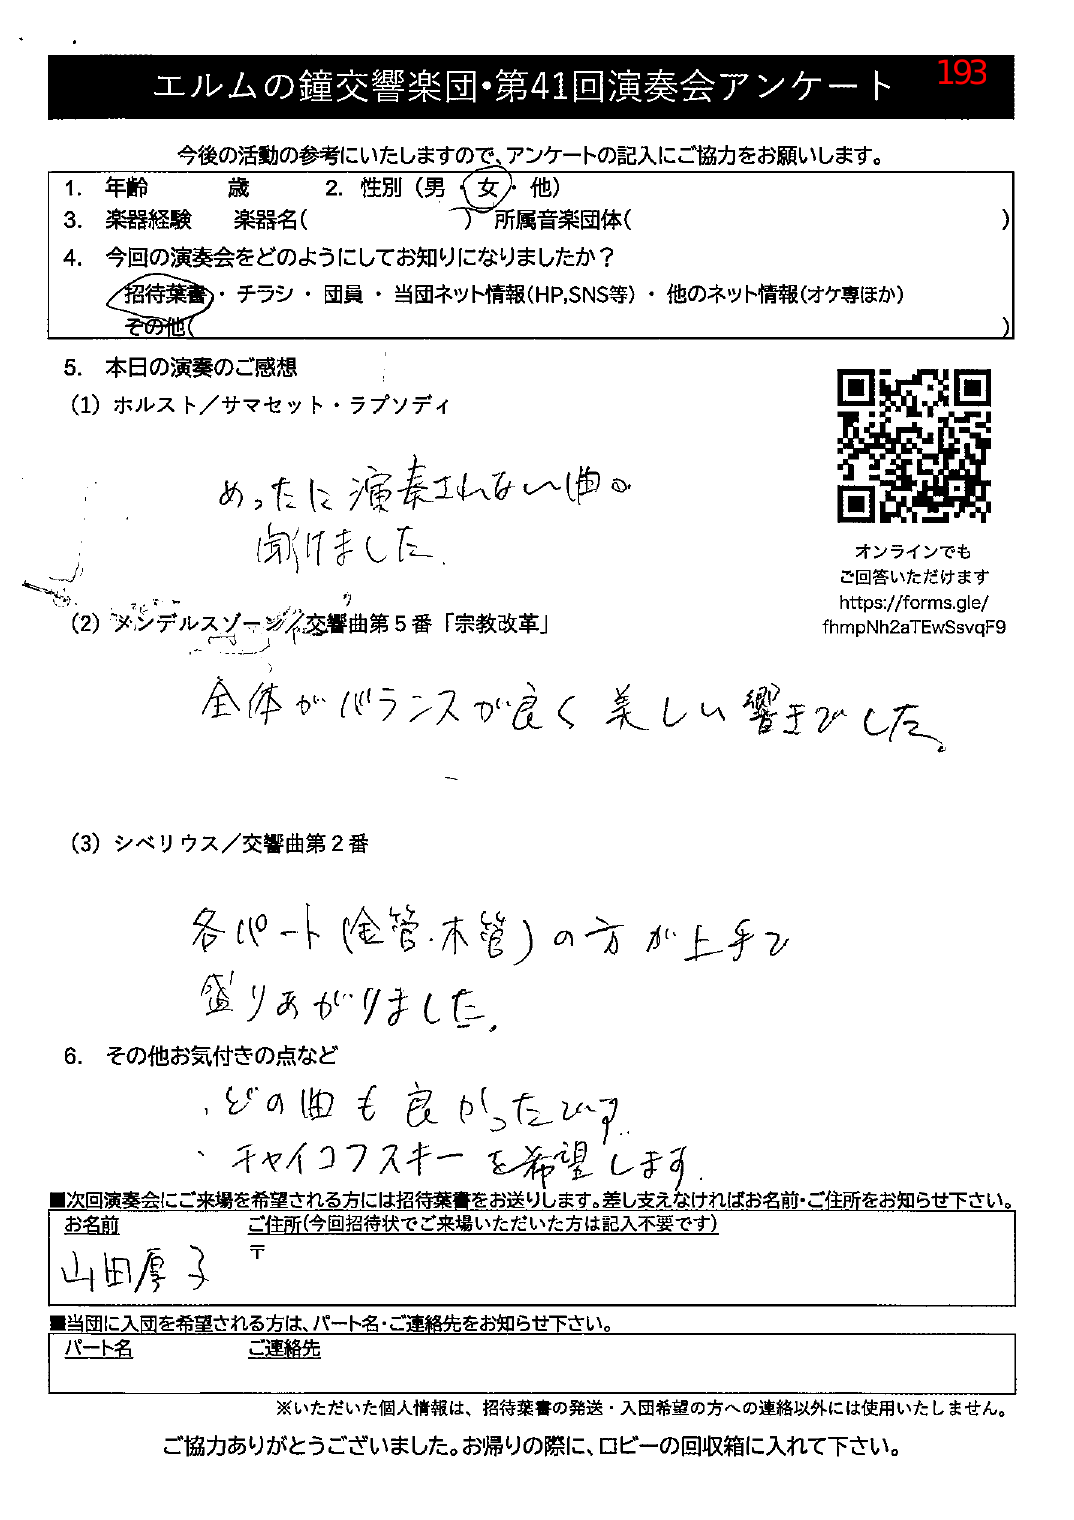 エルムの鐘交響楽団•第41回演奏会アンケート
193
今後の活動の参考にいたしますので、アンケートの記入にご協力をお願いします。
1. 年齢 歳 2. 性別（男・女・他）
3. 楽器経験 楽器名( ) 所属音楽団体( )
4. 今回の演奏会をどのようにしてお知りになりましたか？
招待葉書・チラシ・団員・当団ネット情報(HP,SNS等)・他のネット情報(オケ専ほか)
その他( )
5. 本日の演奏のご感想
（1）ホルスト／サマセット・ラプソディ
めったに演奏されない曲。
聞けました.
オンラインでも
ご回答いただけます
https://forms.gle/
fhmpNh2aTEwSsvqF9
（2）メンデルスゾーン／交響曲第５番「宗教改革」
全体がバランスが良く美しい響きでした。
（3）シベリウス／交響曲第２番
各パート(金管・木管)の方が上手で
盛りあがりました。
6. その他お気付きの点など
・どの曲も良かったです.
・チャイコフスキーを希望します.
■次回演奏会にご来場を希望される方には招待葉書をお送りします。差し支えなければお名前・ご住所をお知らせ下さい。
お名前 ご住所(今回招待状でご来場いただいた方は記入不要です)
〒
山田厚子
■当団に入団を希望される方は、パート名・ご連絡先をお知らせ下さい。
パート名 ご連絡先
※いただいた個人情報は、招待葉書の発送・入団希望の方への連絡以外には使用いたしません。
ご協力ありがとうございました。お帰りの際に、ロビーの回収箱に入れて下さい。